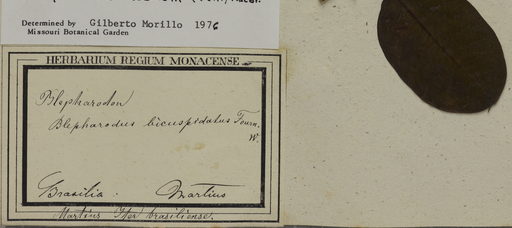 Determined by Gilberto Morillo 1976
Missouri Botanical Garden
HERBARIUM REGIUM MONACENSE
Blepharodon
Blepharodus bicuspidatus Fourn.
W.
Brasilia. Martius
Martius Iter brasiliense.